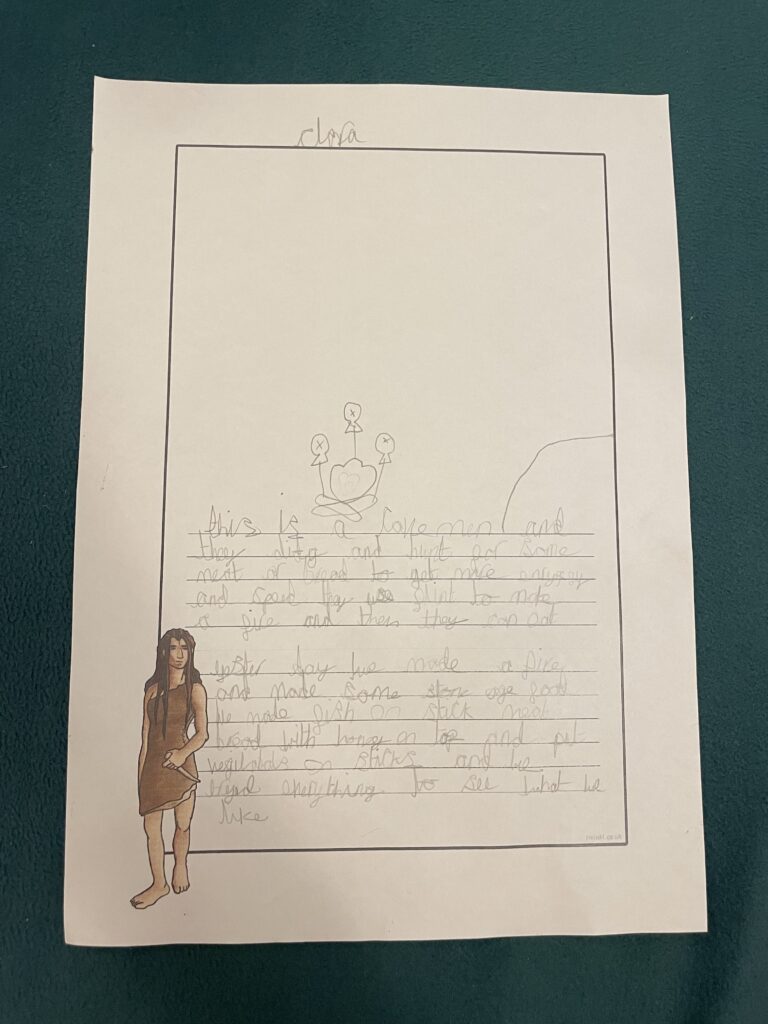 this is a cave men and
they and hunt for some
meat or bread to get more
and speed they use flint to make
a fire and then they can eat
yester day we made a fire
and made some stone age food
we made fish on stick meat
bread with honey on top and put
vegetabls on sticks and we
tryed everything to see what we
like